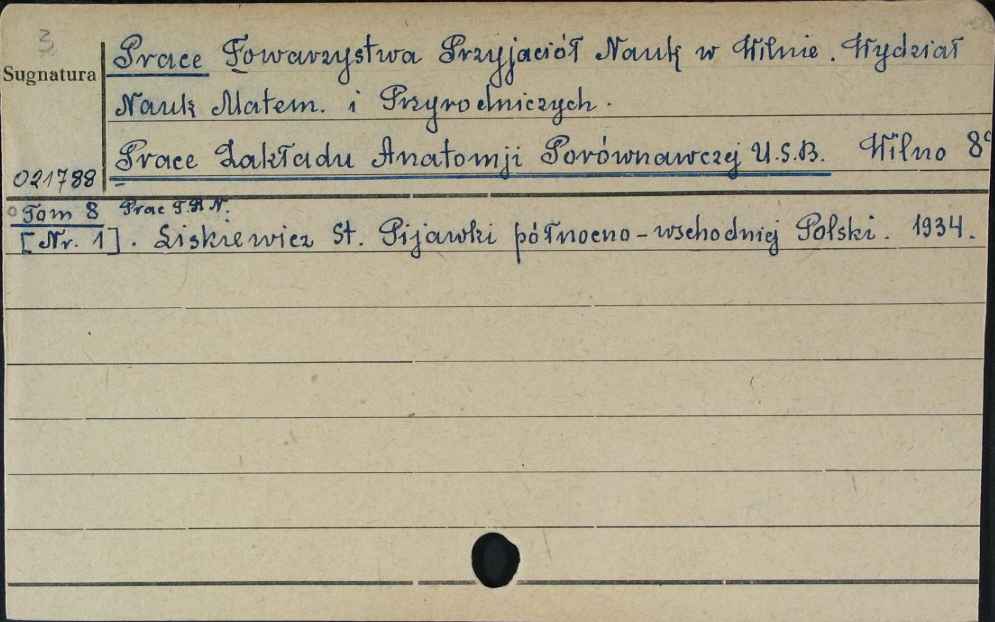 3
Sygnatura
Prace Towarzystwa Przyjaciół Nauk w Wilnie. Wydział
Nauk Matem. i Przyrodniczych.
Prace Zakładu Anatomji Porównawczej U.S.B. Wilno 8°
021788
Tom 8 Prac T.P.N.
[Nr. 1]. Liskiewicz St. Pijawki północno-wschodniej Polski. 1934.